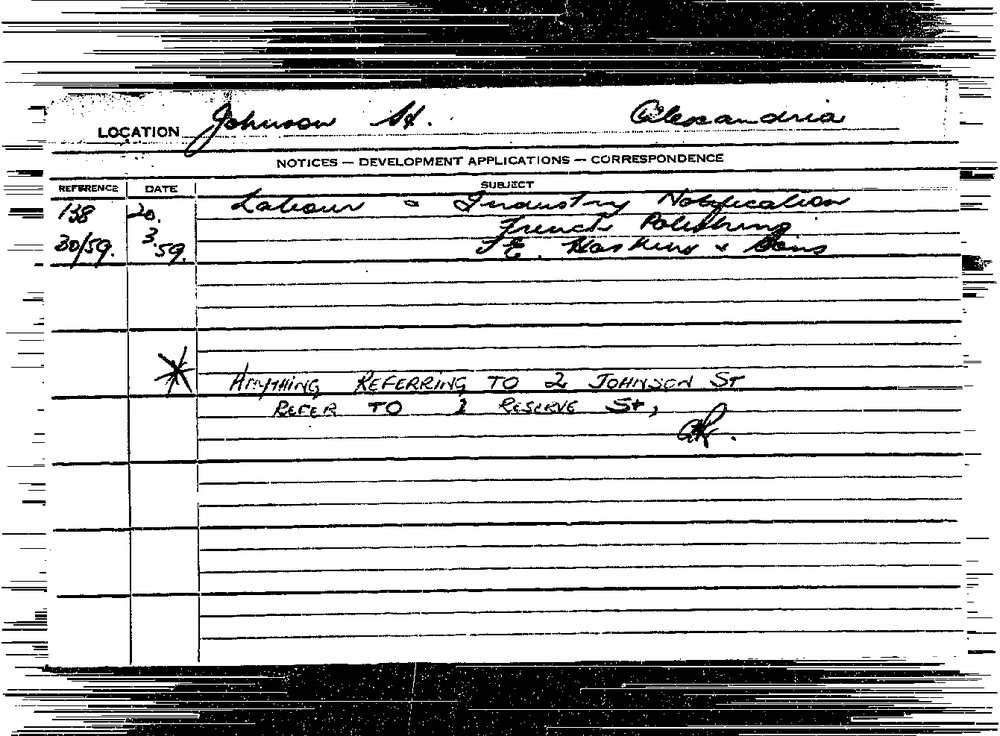 LOCATION Johnson St. Alexandria
NOTICES — DEVELOPMENT APPLICATIONS — CORRESPONDENCE
REFERENCE DATE SUBJECT
138 20. Labour & Industry Notification
French Polishing
30/59. 3.59. Hoskins & Sons
* ANYTHING REFERRING TO 2 JOHNSON ST
REFER TO 1 RESERVE ST,